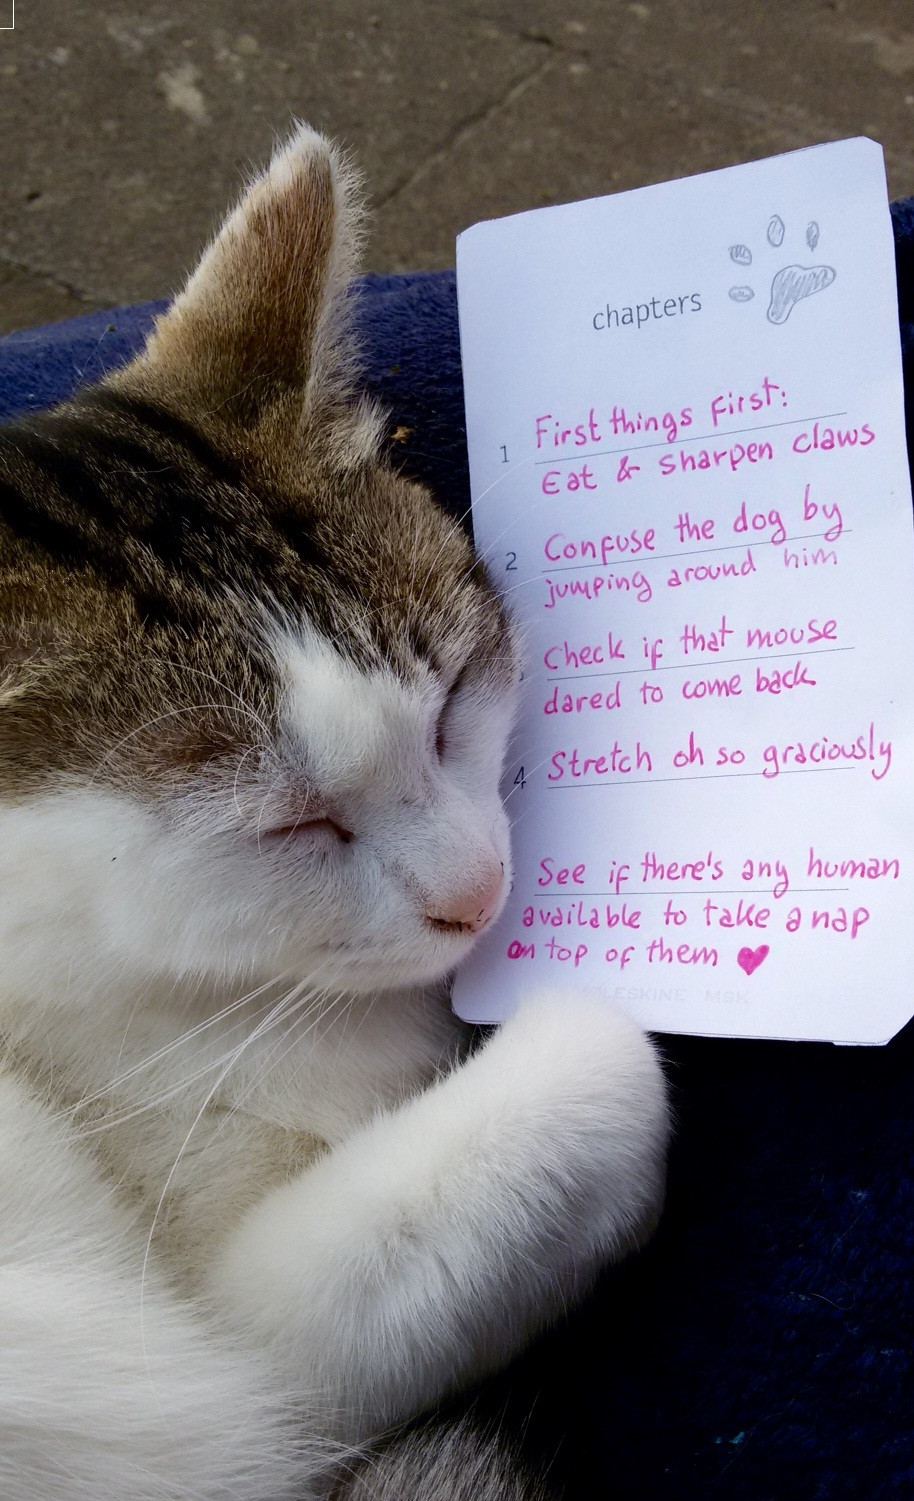 chapters
1 First things first:
Eat & sharpen claws
2 Confuse the dog by
jumping around him
Check if that mouse
dared to come back
4 Stretch oh so graciously
See if there's any human
available to take a nap
on top of them ♥
MSK